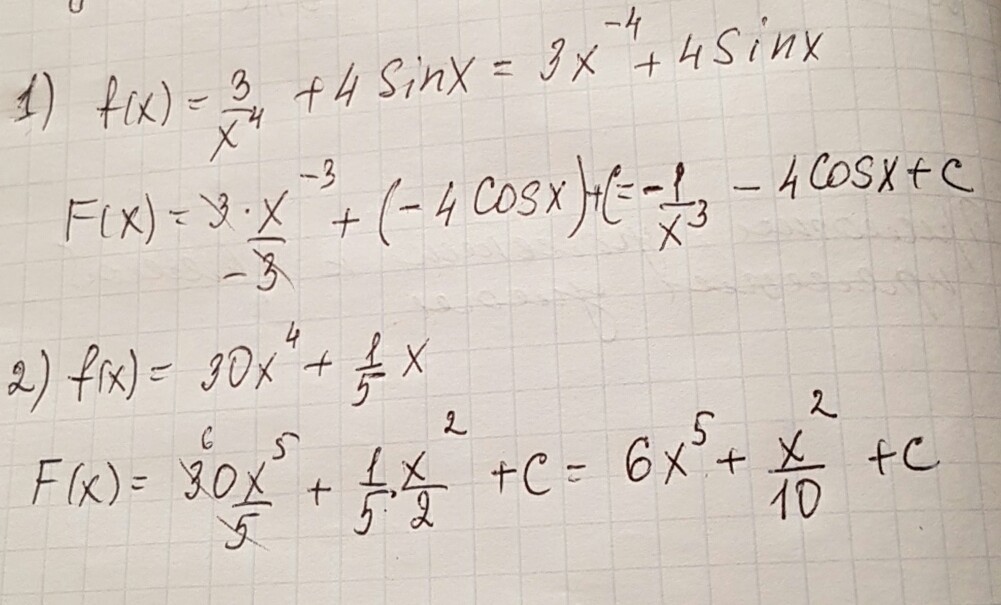 1) f(x) = 3/x⁴ + 4 Sinx = 3x⁻⁴ + 4 Sinx
F(x) = 3 · x⁻³/-3 + (- 4 Cosx) + C = - 1/x³ - 4 Cosx + C
2) f(x) = 30x⁴ + 1/5 x
F(x) = 30x⁵/5 + 1/5 · x²/2 + C = 6x⁵ + x²/10 + C